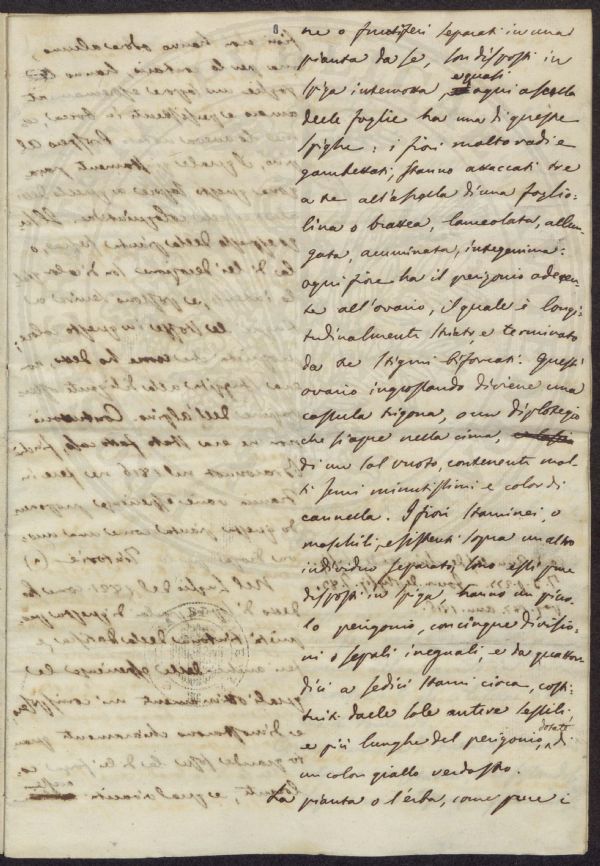 8
ne o fruttiferi separati in una
pianta da se, son disposti in
spiga interrossa, e quasi ogni ascella
delle foglie ha una di queste
spighe: i fiori molto radi e
gambettati, stanno attaccati tre
a tre all'ascella di una foglio-
lina o brattea, lanceolata, allun-
gata, acuminata, integerrima:
ogni fiore ha il perigonio aderen-
te all'ovario, il quale è longi-
tudinalmente striato, e terminato
da tre stigmi biforcati. Quest'
ovario ingrossando diviene una
cassula trigona, o un diplotegio
che si apre nella cima,
di un sol vuoto, contenente mol-
ti semi minutissimi e color di
cannella. I fiori staminei, o
maschili, esistenti sopra un altro
individuo separato, sono essi pure
disposti in spiga, hanno un picco-
lo perigonio, con cinque divisio-
ni o sepali ineguali, e da quattor-
dici a sedici stami circa, costi-
tuiti dalle sole antere sessili,
e più lunghe del perigonio, dotate di
un color giallo verdastro.
La pianta o l'erba, come pure i